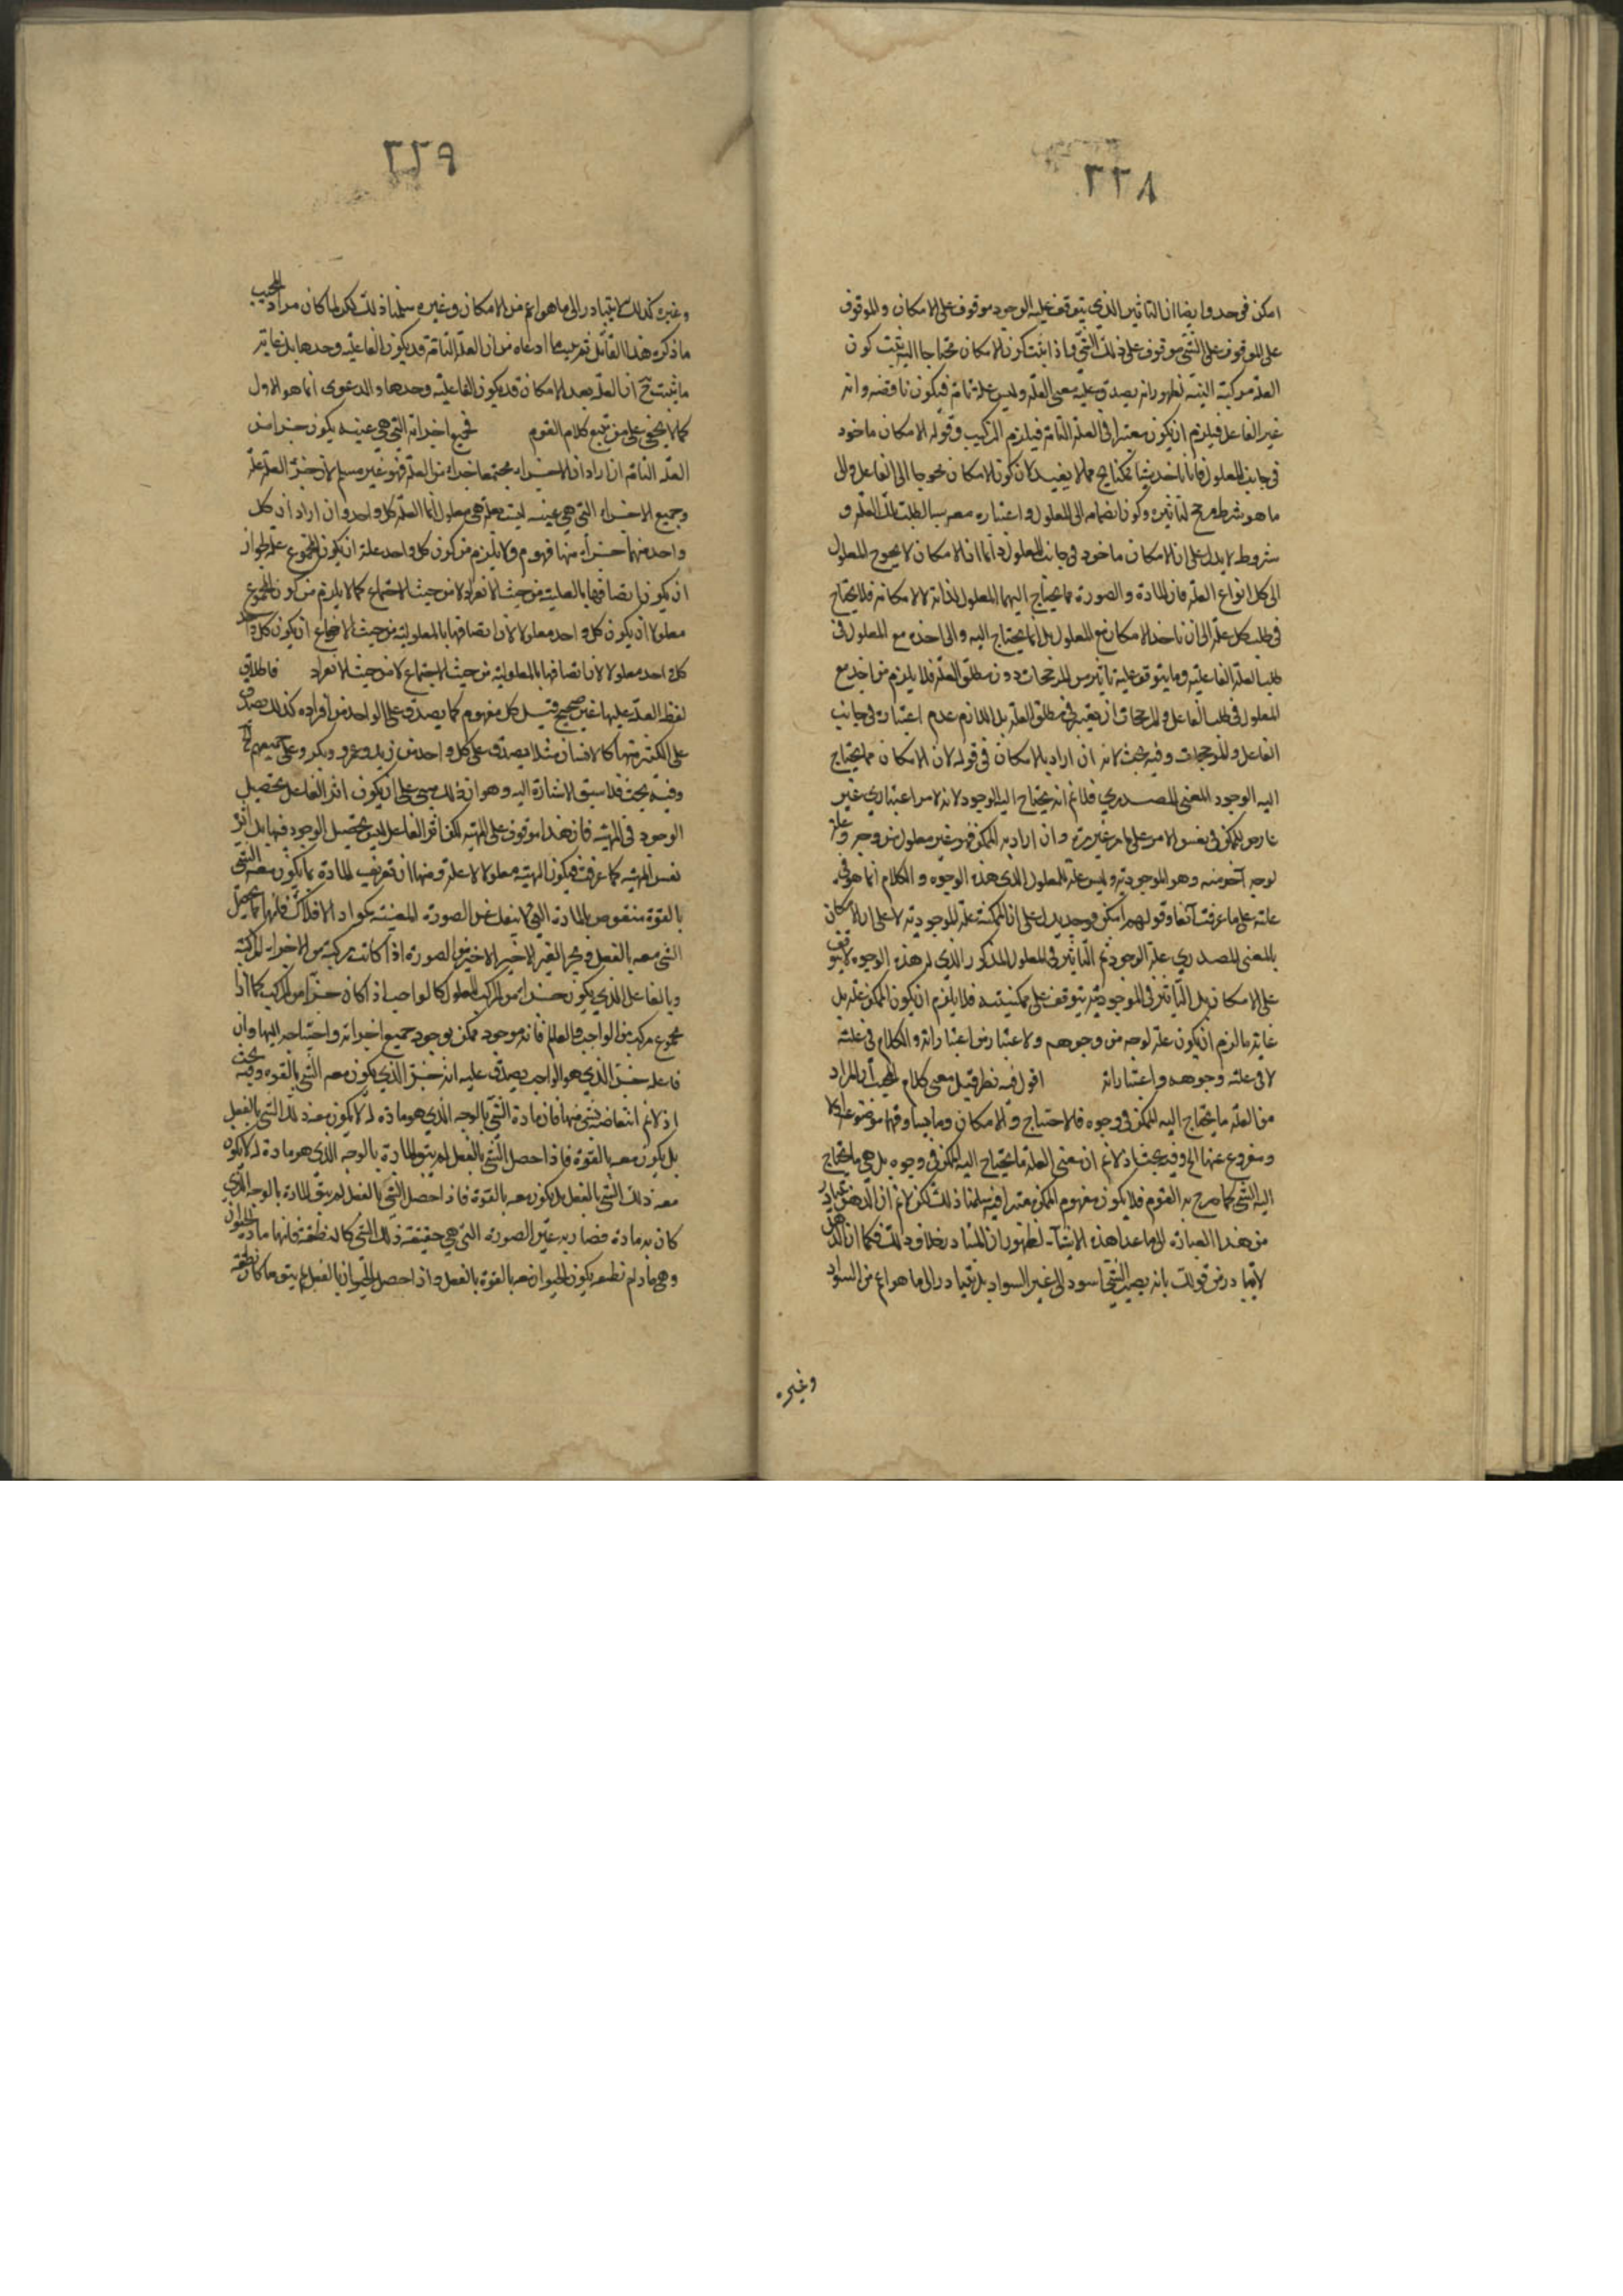 ٢٢٨
امكن فوجد وايضا ان التاثير الذي يتوقف عليه الوجود موقوف على الامكان والموقوف
على الموقوف على الشئ موقوف على ذلك الشئ واذا ثبت كون الامكان محتاجا اليه ثبت كون
العلة مركبة البتة لظهور انه يصدق عليه معنى العلة وليس علة تامة فيكون ناقصة وانه
غير الفاعل فيلزم ان يكون معتبرا في العلة التامة فيلزم التركيب وقوله الامكان ماخوذ
في جانب المعلول فانا ناخذ شيئا ممكنا الخ مما لا يفيد لان كون الامكان محوجا الى الفاعل والى
ما هو شرط مرجح لتاثيره وكون انضمامه الى المعلول واعتباره معه سببا لطلب تلك العلة و
شروطه لا يدل على ان الامكان ماخوذ في جانب المعلول دائما ان الامكان لا يحوج المعلول
الى كل انواع العلة فان المادة والصورة مما يحتاج اليهما المعلول لذاته لا لامكانه فلا يحتاج
في طلب كل علة الى ان ناخذ الامكان مع المعلول بل انما يحتاج اليه والى اخذه مع المعلول في
طلب العلة الفاعلية وما يتوقف عليه تاثيره من المرجحات دون مطلق العلة فلا يلزم من اخذه مع
المعلول في طلب الفاعل والمرجحات ان يعتبر في مطلق العلة بل اللازم عدم اعتباره في جانب
الفاعل والمرجحات وفيه بحث لانه ان اراد بالامكان في قوله لان الامكان مما يحتاج
اليه الوجود المعنى المصدري فلا نم انه يحتاج اليه الوجود لانه لامر اعتباري غير
عارض للممكن في نفس الامر على ما مر غير مرة وان اراد به الممكن فهو غير معلول من وجه وعلة
لوجه آخر منه وهو الموجودية وليس علة للمعلول الذي هذه الوجوه والكلام انما هو في
علته على ما عرفت آنفا وقولهم امكن فوجد يدل على ان الممكنية علة للموجودية لا على ان الامكان
بالمعنى المصدري علة الوجود ثم التاثير في المعلول المذكور الذي له هذه الوجوه لا يتوقف
على الامكان بل التاثير في الموجودية يتوقف على ممكنيته فلا يلزم ان يكون الممكن علة بل
غاية ما لزم ان يكون علة لوجه من وجوهه ولاعتبار من اعتباراته والكلام في علته
لا في علة وجوهه واعتباراته اقول فيه نظر قيل معنى كلام المجيب ان المراد
من العلة ما يحتاج اليه الممكن في وجوده فالاحتياج والامكان وما يساوقهما موضوعة اولا
ومفروغ عنها الخ وفيه بحث اذ لا نم ان معنى العلة ما يحتاج اليه الممكن في وجوده بل هي ما يحتاج
اليه الشئ كما صرح به القوم فلا يكون مفهوم الممكن معتبرا فيه سلمنا ذلك لكن لا نم ان الذهن تبادر
من هذا العبارة الى ما عدا هذه الاشياء لظهور ان المتبادر بخلاف ذلك فكما ان الذهن
لا يتبادر من قولك بانه يصير الشئ اسود الى غير السواد بل يتبادر الى ما هو اعم من السواد
وغيره
٢٢٩
وغيره كذلك لا يتبادر الى ما هو اعم من الامكان وغيره سلمنا ذلك لكن لما كان مراد المجيب
ما ذكره هذا القائل تقريب ما ادعاه من ان العلة التامة قد يكون الفاعلية وحدها بل غاية
ما ثبت ح ان العلة بعد الامكان قد يكون الفاعلية وحدها والدعوى انما هو الاول
كما لا يخفى على من تتبع كلام القوم فجميع اجزائه التي هي عينه يكون جزء من
العلة التامة ان اراد ان الاجزاء مجتمعة جزء من العلة فهو غير مسلم لان جزء العلة علة
وجميع الاجزاء التي هي عينه ليست بعلة هي معلول انما العلة كل واحد وان اراد ان كل
واحد منهما جزء منها فهو م ولا يلزم من كون كل واحد علة ان يكون المجموع علة لجواز
ان يكون اتصافها بالعلية من حيث الانفراد لا من حيث الاجتماع كما لا يلزم من كون المجموع
معلولا ان يكون كل واحد معلولا لان اتصافها بالمعلولية من حيث الاجتماع ان يكون كل واحد
كل واحد معلولا لان اتصافها بالمعلولية من حيث الاجتماع لا من حيث الانفراد فاطلاق
لفظ العلة عليها غير صحيح قيل كل مفهوم كما يصدق على الواحد من افراده كذلك يصدق
على الكثير منها كالانسان مثلا يصدق على كل واحد من زيد وعمرو وبكر وعلى جميعهم الخ
وفيه بحث قد سبق الاشارة اليه وهو ان ذلك مبنى على ان يكون اثر الفاعل تحصيل
الوجود في المهية فان هذا موقوف على المهية لكن اثر الفاعل ليس تحصيل الوجود فيها بل اثره
نفس المهية كما عرفت فيكون المهية معلولا لا علة ومنها ان تعريف المادة بما يكون معه الشئ
بالقوة منقوض بالمادة التي لا ينفك عن الصورة المعينة كمواد الافلاك فانها مما يحصل
الشئ معه بالفعل وبجزء الغير الاخير من الصورة اذا كانت مركبة من الاجزاء المركبة
وبالفاعل الذي يكون جزءا من المركب المعلول كالواجب اذا كان جزءا من المركب كما اذا
مجموع مركب من الواجب والعالم فانه موجود ممكن بوجود جميع اجزائه واحتياجه اليها وان
فاعله جزئه الذي هو الواجب يصدق عليه انه جزئه الذي يكون معه الشئ بالقوة وفيه بحث
اذ لا نم انتقاضه بشئ منها فان مادة الشئ بالوجه الذي هو مادة له لا يكون معه ذلك الشئ بالفعل
بل يكون معه بالقوة فاذا حصل الشئ بالفعل لم يبق المادة بالوجه الذي هو مادة له لا يكون
معه ذلك الشئ بالفعل بل يكون معه بالقوة فاذا حصل الشئ بالفعل لم يبق المادة بالوجه الذي
كان به مادة فصار به عين الصورة التي هي حقيقة ذلك الشئ كالنطفة فانها مادة للحيوان
وهي مادام نطفة يكون الحيوان معه بالقوة بالفعل واذا حصل الحيوان بالفعل لم يبق ما كان نطفة